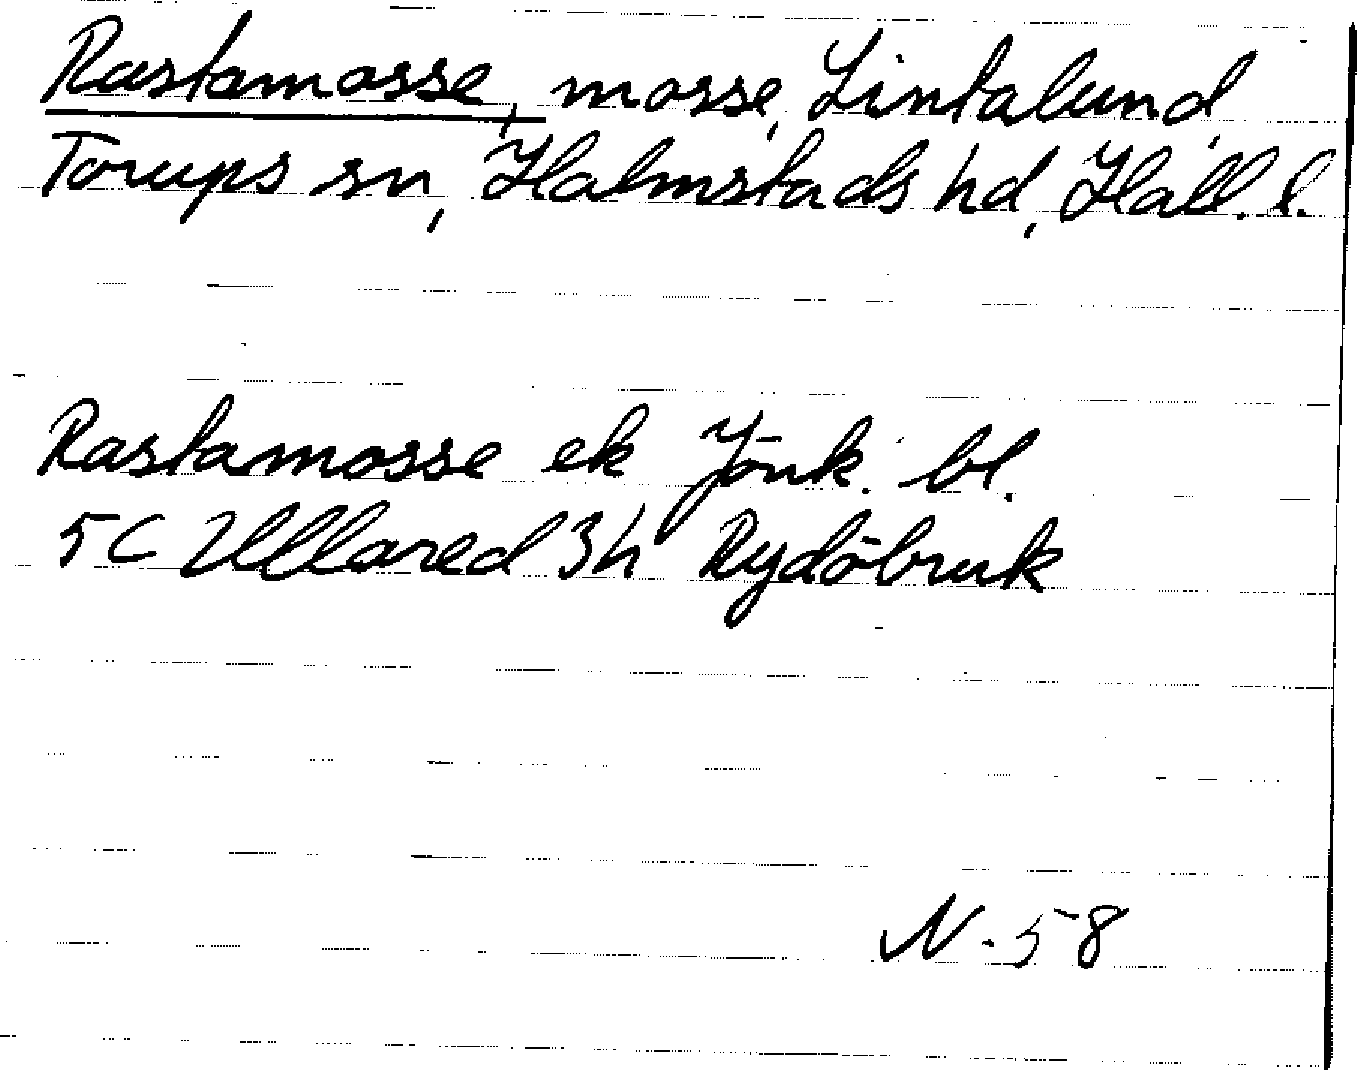 Rastamosse, mosse, Lintalund,
Torups sn, Halmstads hd, Hall. l.
Rastamosse ek Jönk. bl.
5C Ullared 3h Rydöbruk
N-58